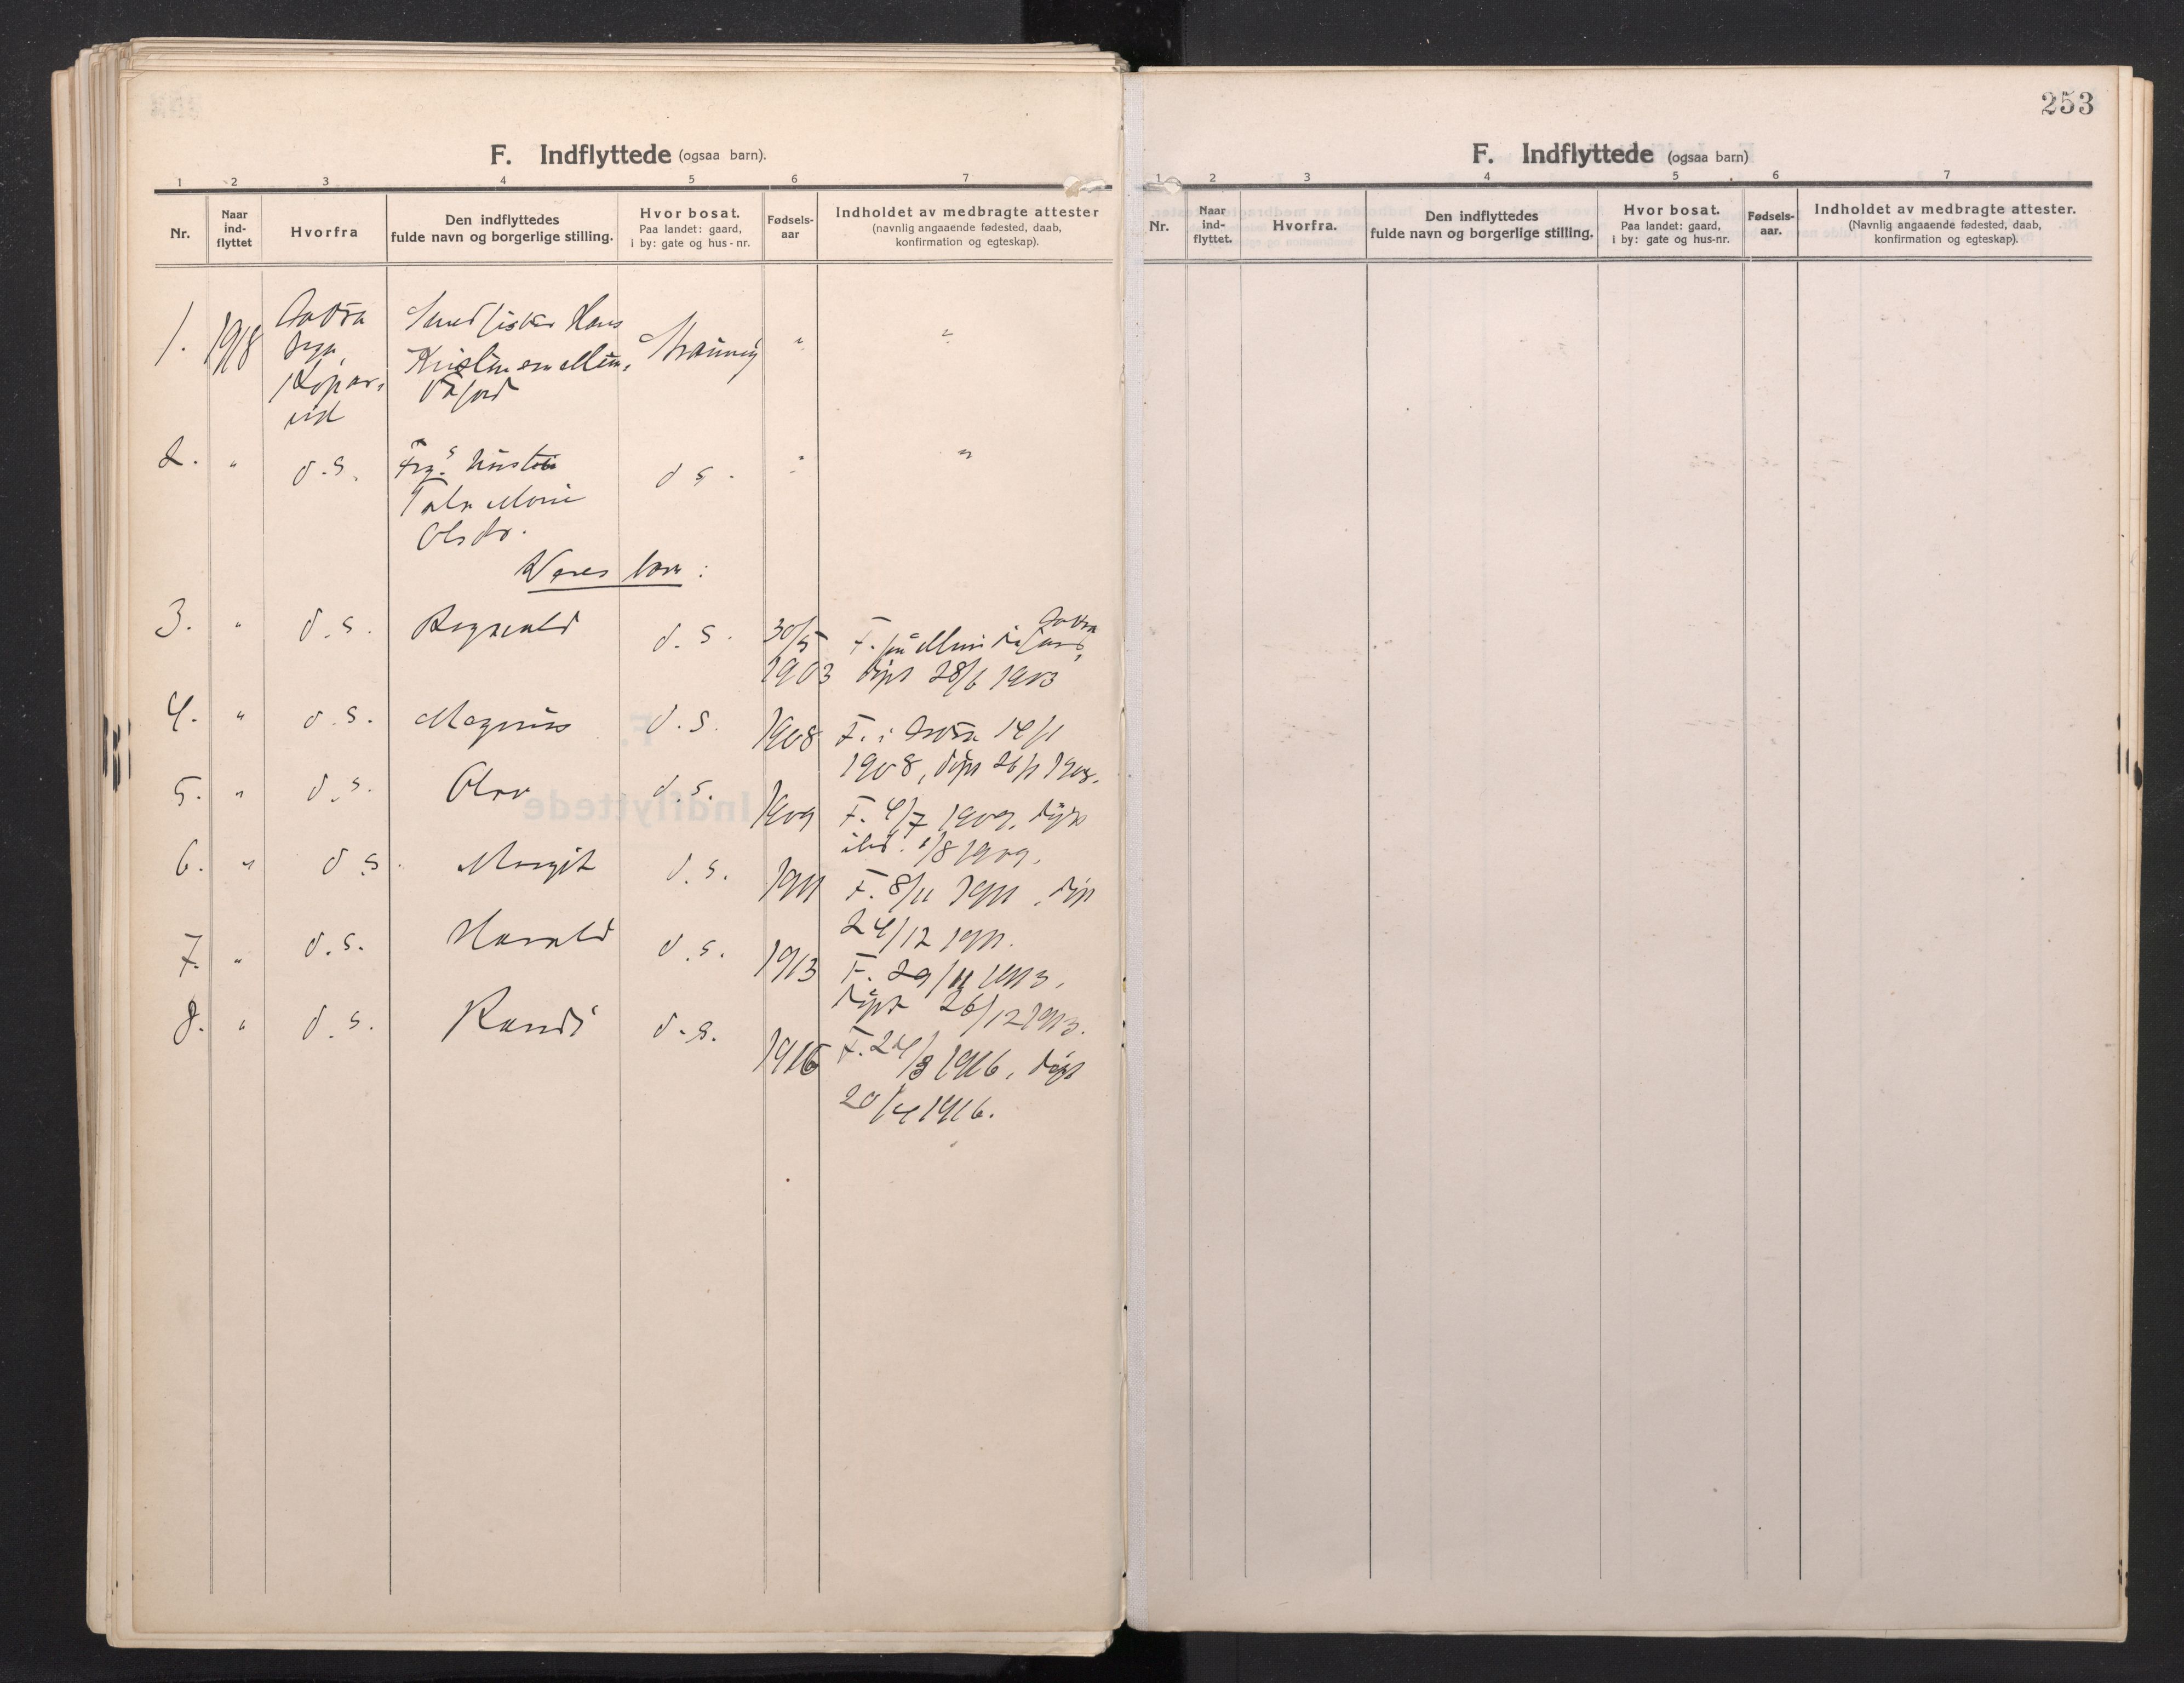 F. Indflyttede (ogsaa barn).
1 2 3 4 5 6 7
Nr.
Naar ind-flyttet
Hvorfra
Den indflyttedes
fulde navn og borgerlige stilling.
Hvor bosat.
Paa landet: gaard,
i by: gate og hus-nr.
Fødsels-aar
Indholdet av medbragte attester
(navnlig angaaende fødested, daab,
konfirmation og egteskap).
1. 1918 Hans " "
2. " d.s. d s. " "
Olsdtr.
Deres barn:
3. " d.s. Ragnvald d.s. 30/5
1903 døpt 28/6 1903
4. " d.s. Magnus d.s. 1908 F. i 14/1
1908, døpt 26/1 1908.
5. " d.s. Olav d.s. 1909 F. 4/7 1909, døpt
ibd. 1/8 1909.
6. " d s. Margit d.s. 1911 F. 8/11 1911, døpt
24/12 1911.
7. " d.s. Harald d.s. 1913 F. 29/11 1913,
døpt 26/12 1913.
8. " d.s. Randi d.s. 1916 F. 24/3 1916, døpt
20/4 1916.
253
F. Indflyttede (ogsaa barn)
1 2 3 4 5 6 7
Nr.
Naar ind-flyttet.
Hvorfra.
Den indflyttedes
fulde navn og borgerlige stilling.
Hvor bosat.
Paa landet: gaard,
i by: gate og hus-nr.
Fødsels-aar.
Indholdet av medbragte attester.
(Navnlig angaaende fødested, daab,
konfirmation og egteskap).